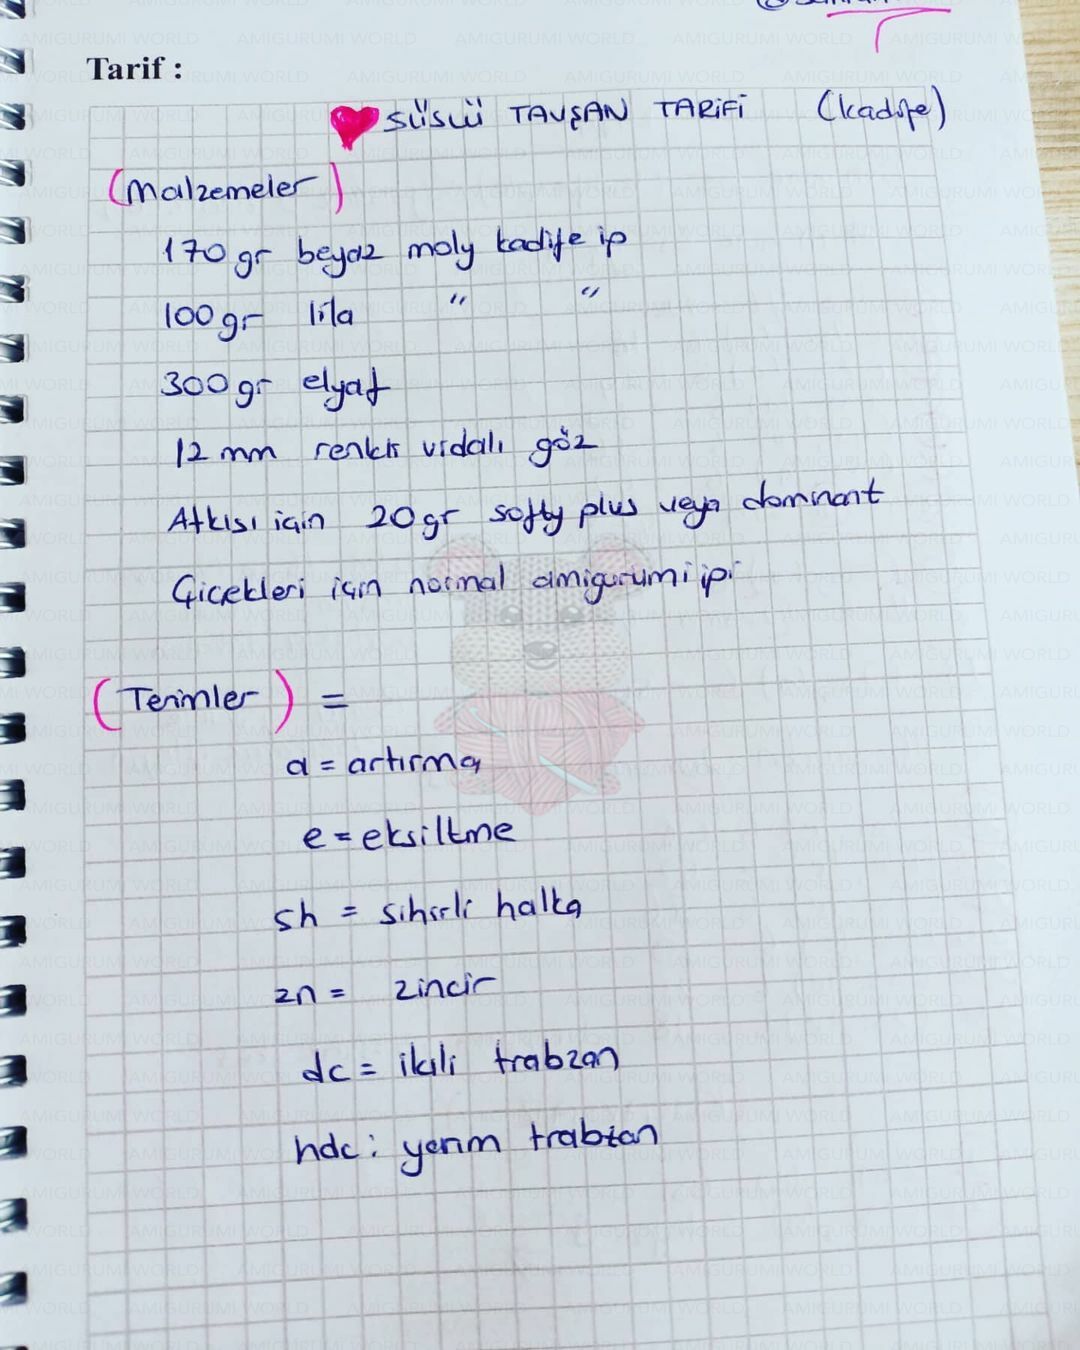 Tarif :
SÜSLÜ TAVŞAN TARİFİ (kadife)
(Malzemeler)
170 gr beyaz moly kadife ip
100 gr lila " "
300 gr elyaf
12 mm renkli vidalı göz
Atkısı için 20 gr softy plus veya dominant
Çiçekleri için normal amigurumi ipi
(Terimler) =
a = artırma
e = eksiltme
sh = sihirli halka
zn = zincir
dc = ikili trabzan
hdc : yarım trabzan
AMIGURUMI WORLD